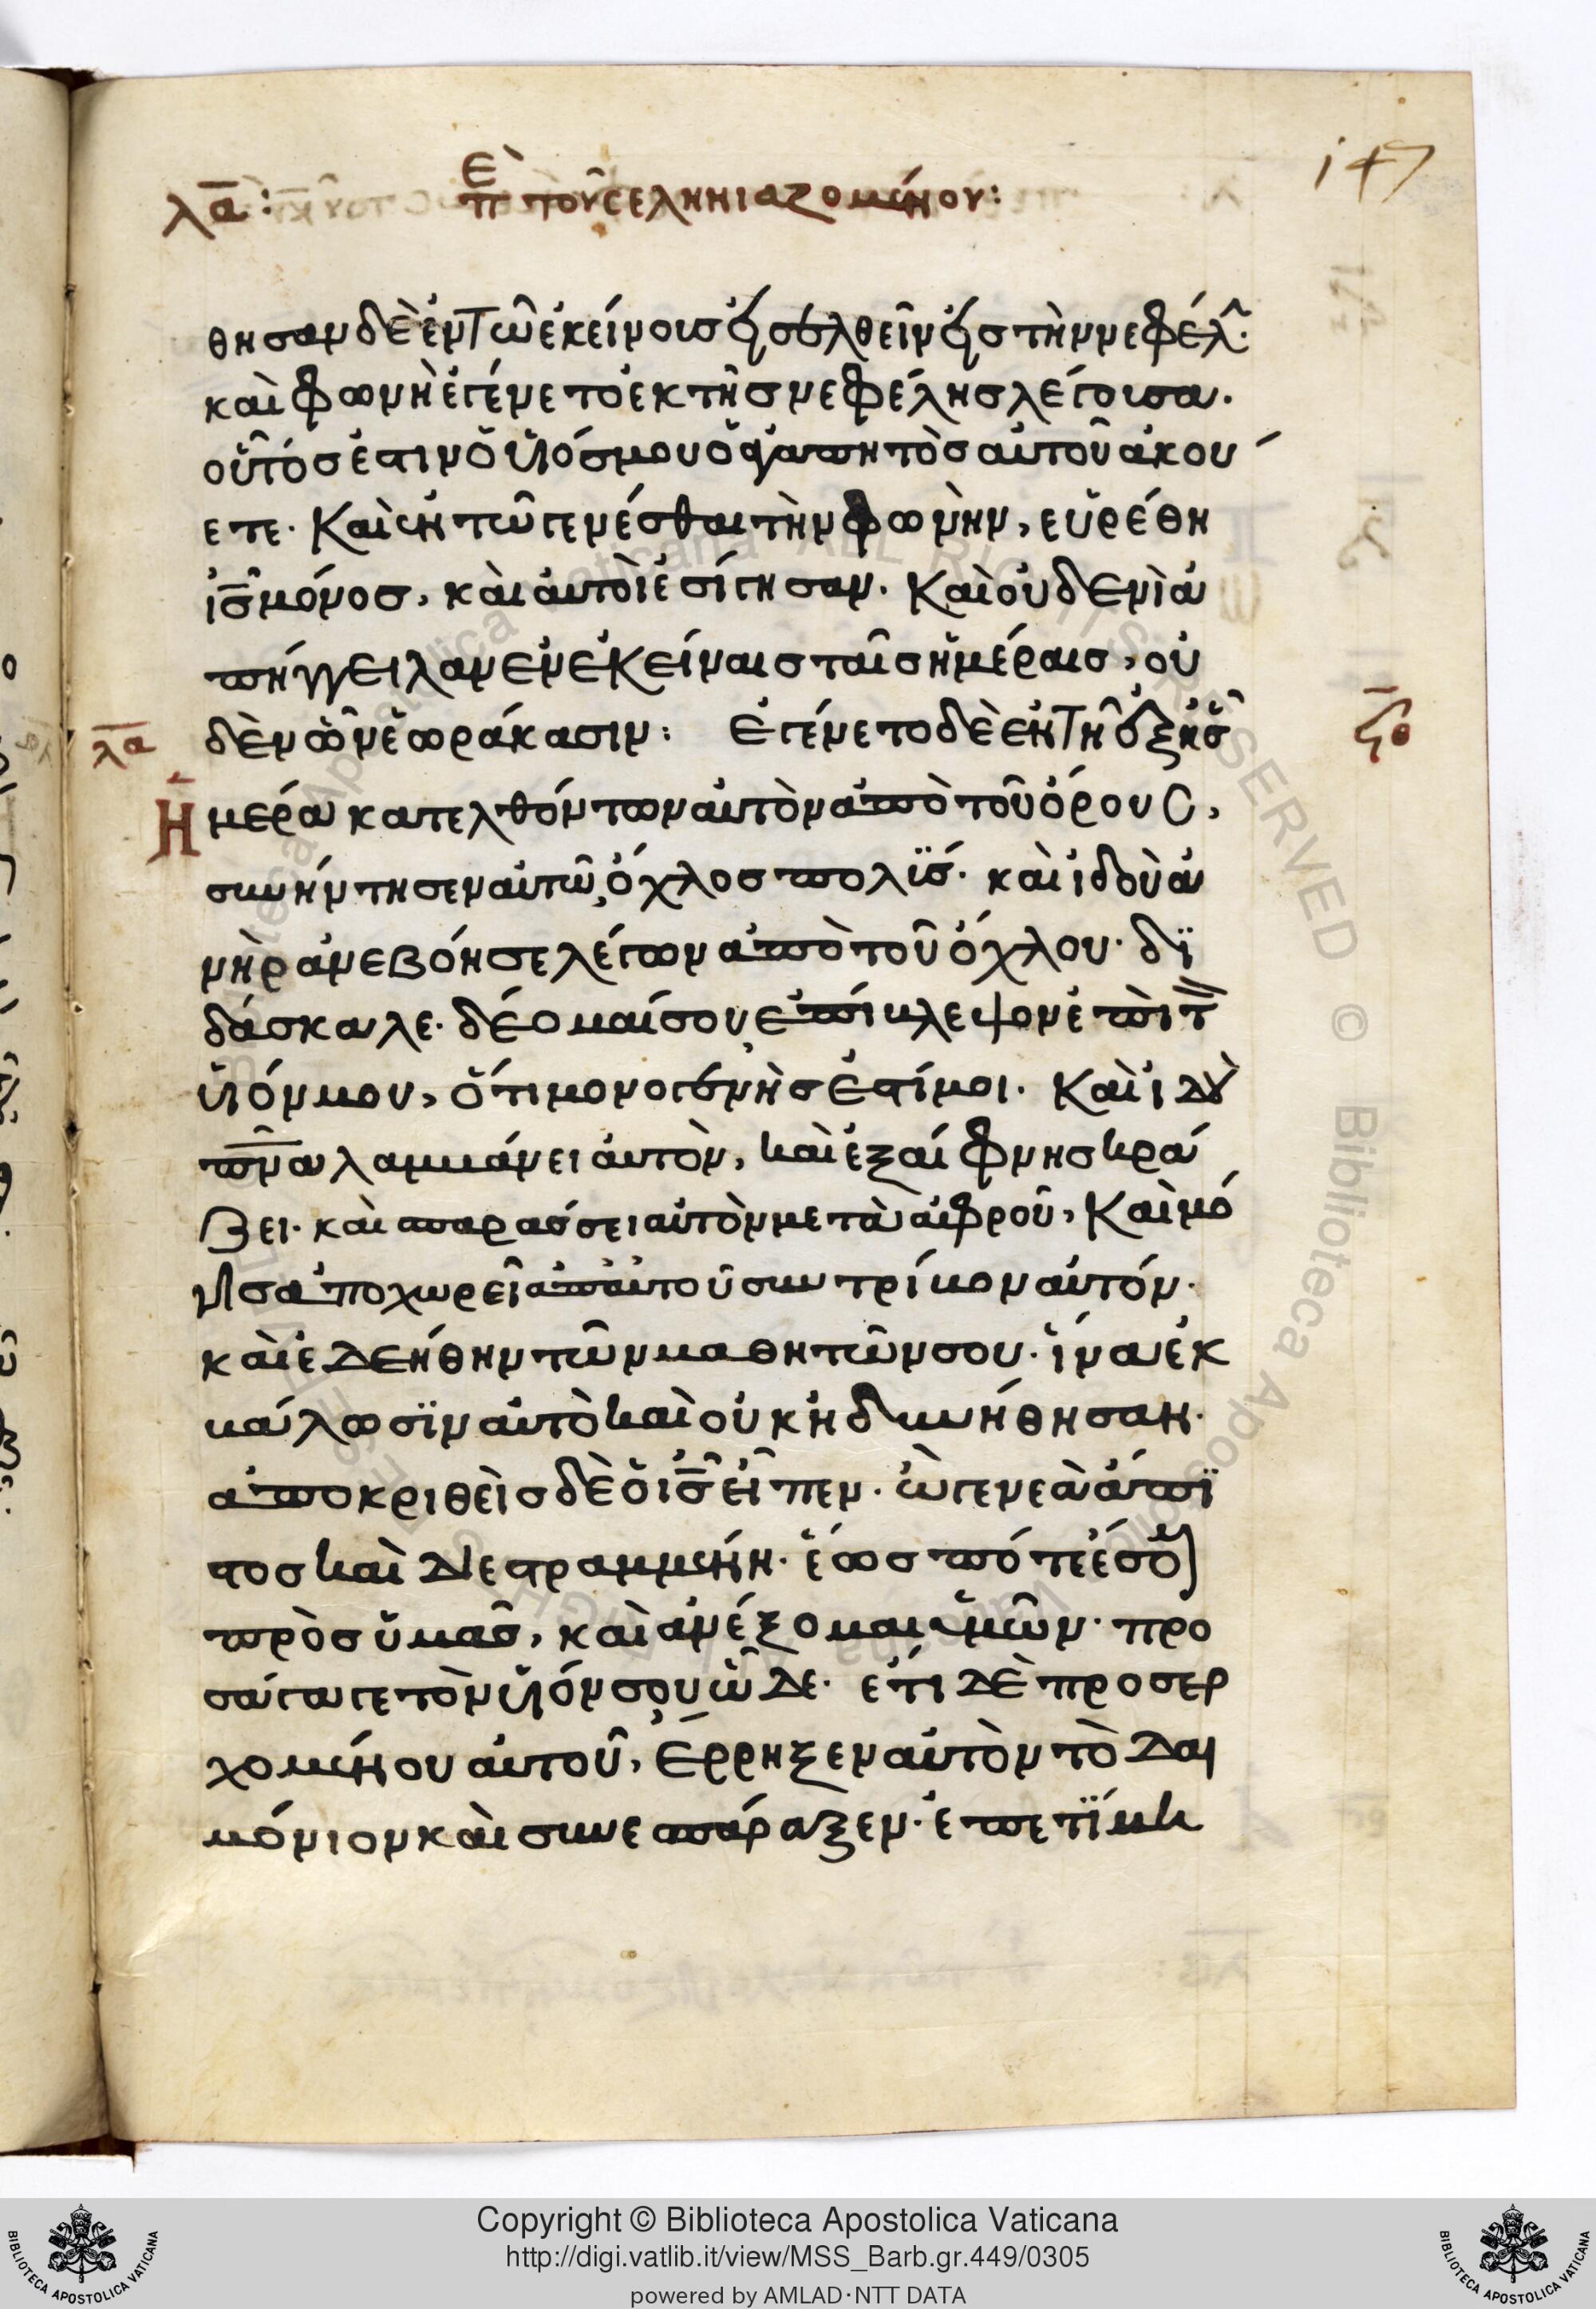 147
λα: Πε τοῦ σεληνιαζομένου:
θησαν δὲ ἐν τῶ ἐκείνοισ εἰσελθεῖν εἰσ τὴν νεφέλ·
καὶ φωνὴ ἐγένετο ἐκ τῆσ νεφέλησ λέγουσα·
οὗτόσ ἐστιν ὁ ὑιόσ μου ὁ ἀγαπητὸσ αὐτοῦ ἀκού
ετε· Καὶ ἐν τῶ γενέσθαι τὴν φωνὴν, εὑρέθη
ἰς μόνοσ, καὶ αὐτοὶ ἐσίγησαν· Καὶ οὐδενὶ ἀ
πήγγειλαν ἐν ἐκείναισ ταῖσ ἡμέραισ, οὐ
δὲν ὧν ἑωράκασιν: Ἐγένετο δὲ ἐν τῆ ἑξῆσ
λα
ζο
Ἡμέρα κατελθόντων αὐτὸν ἀπὸ τοῦ ὄρουσ,
συνήντησεν αὐτῶ ὄχλοσ πολϊσ· καὶ ἰδοὺ ἀ
νὴρ ἀνεβόησε λέγων ἀπὸ τοῦ ὄχλου· δϊ
δάσκαλε· δέομαί σου, ἐπίβλεψον ἐπὶ τ
ὑιόν μου, ὅτι μονογενὴσ ἐστί μοι· Καὶ ἰδοὺ
πνα λαμβάνει αὐτὸν, καὶ ἐξαίφνησ κρά
ζει· καὶ σπαράσσει αὐτὸν μετὰ ἀφροῦ, Καὶ μό
γισ ἀποχωρεῖ ἀπ' αὐτοῦ συντρίβον αὐτόν·
καὶ ἐδεήθην τῶν μαθητῶν σου· ἵνα ἐκ
βάλωσϊν αὐτὸ καὶ οὐκ ἠδυνήθησαν·
ἀποκριθεὶσ δὲ ὁ ις εἶπεν· ὦ γενεὰ ἄπϊ
στοσ καὶ διεστραμμένη· ἕωσ πότε ἔσομαι
πρὸσ ὑμᾶσ, καὶ ἀνέξομαι ὑμῶν· προ
σάγαγε τὸν ὑιόν σου, ὧδε· ἔτι δὲ προσερ
χομένου αὐτοῦ, Ἔρρηξεν αὐτὸν τὸ δαι
μόνιον καὶ συνεσπάραξεν· ἐπετϊμη
Copyright © Biblioteca Apostolica Vaticana
http://digi.vatlib.it/view/MSS_Barb.gr.449/0305
powered by AMLAD·NTT DATA